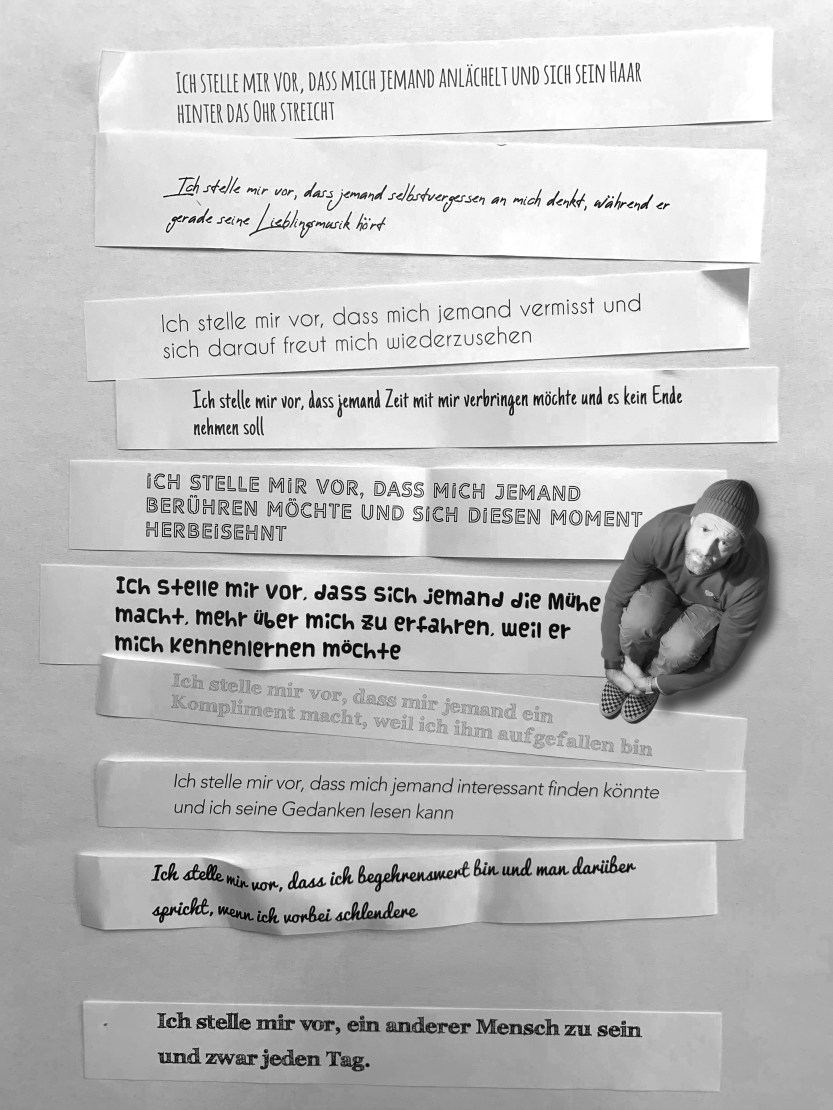 Ich stelle mir vor, dass mich jemand anlächelt und sich sein Haar
hinter das Ohr streicht
Ich stelle mir vor, dass jemand selbstvergessen an mich denkt, während er
gerade seine Lieblingsmusik hört
Ich stelle mir vor, dass mich jemand vermisst und
sich darauf freut mich wiederzusehen
Ich stelle mir vor, dass jemand Zeit mit mir verbringen möchte und es kein Ende
nehmen soll
ICH STELLE MIR VOR, DASS MICH JEMAND
BERÜHREN MÖCHTE UND SICH DIESEN MOMENT
HERBEISEHNT
Ich stelle mir vor, dass sich jemand die Mühe
macht, mehr über mich zu erfahren, weil er
mich kennenlernen möchte
Ich stelle mir vor, dass mir jemand ein
Kompliment macht, weil ich ihm aufgefallen bin
Ich stelle mir vor, dass mich jemand interessant finden könnte
und ich seine Gedanken lesen kann
Ich stelle mir vor, dass ich begehrenswert bin und man darüber
spricht, wenn ich vorbei schlendere
Ich stelle mir vor, ein anderer Mensch zu sein
und zwar jeden Tag.